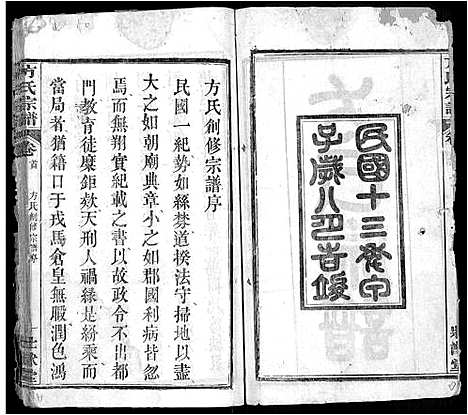 民國十三年甲
子歲八月告竣
方氏創修宗譜序
民國一紀勢如絲棼道揆法守掃地以盡
大之如朝廟典章小之如郡國利病皆忽
焉而無翔實紀載之書以故政令不出都
門教育徒糜鉅欵天刑人禍緣是紛乘而
當局者猶藉口于戎馬倉皇無暇潤色鴻
方氏宗譜
卷首
方氏創修宗譜序